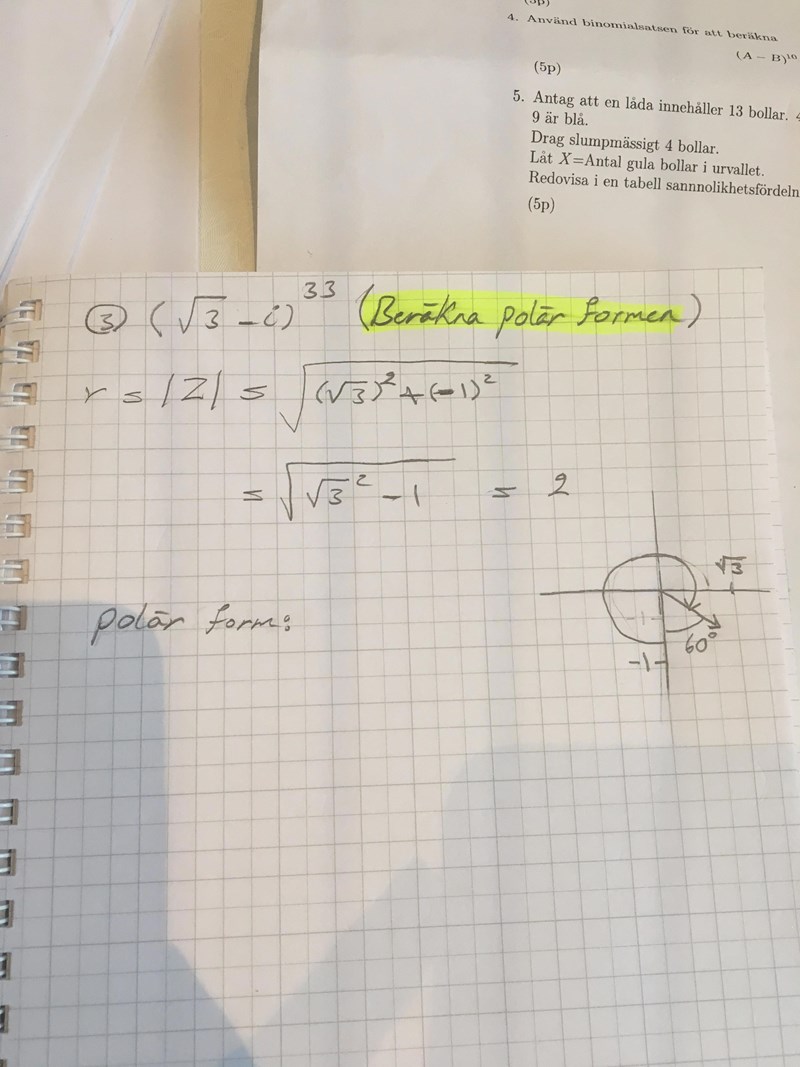 (5p)
4. Använd binomialsatsen för att beräkna
(A − B)¹⁰
(5p)
5. Antag att en låda innehåller 13 bollar. 4
9 är blå.
Drag slumpmässigt 4 bollar.
Låt X=Antal gula bollar i urvallet.
Redovisa i en tabell sannnolikhetsfördeln
(5p)
③ (√3 - i)³³ (Beräkna polär formen)
r = |Z| = √((√3)² + (-1)²)
= √(√3² - 1) = 2
√3
-1
60°
-1
polär form: